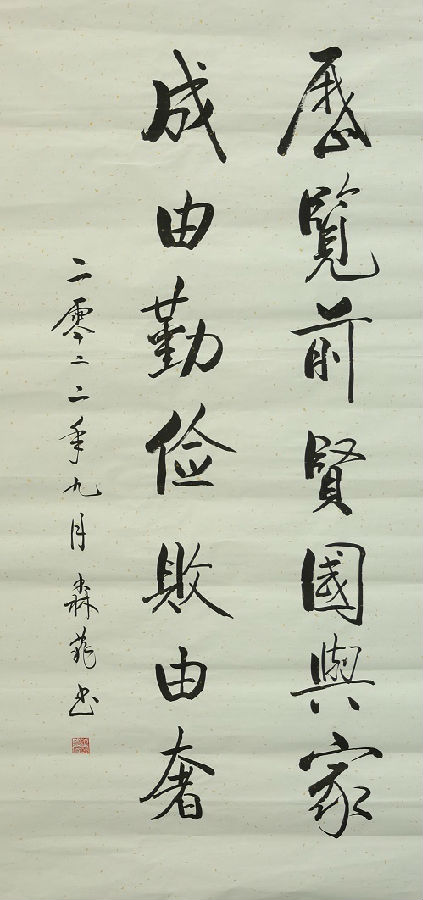 歷覽前賢國與家
成由勤俭敗由奢
二零二二年九月森苑书